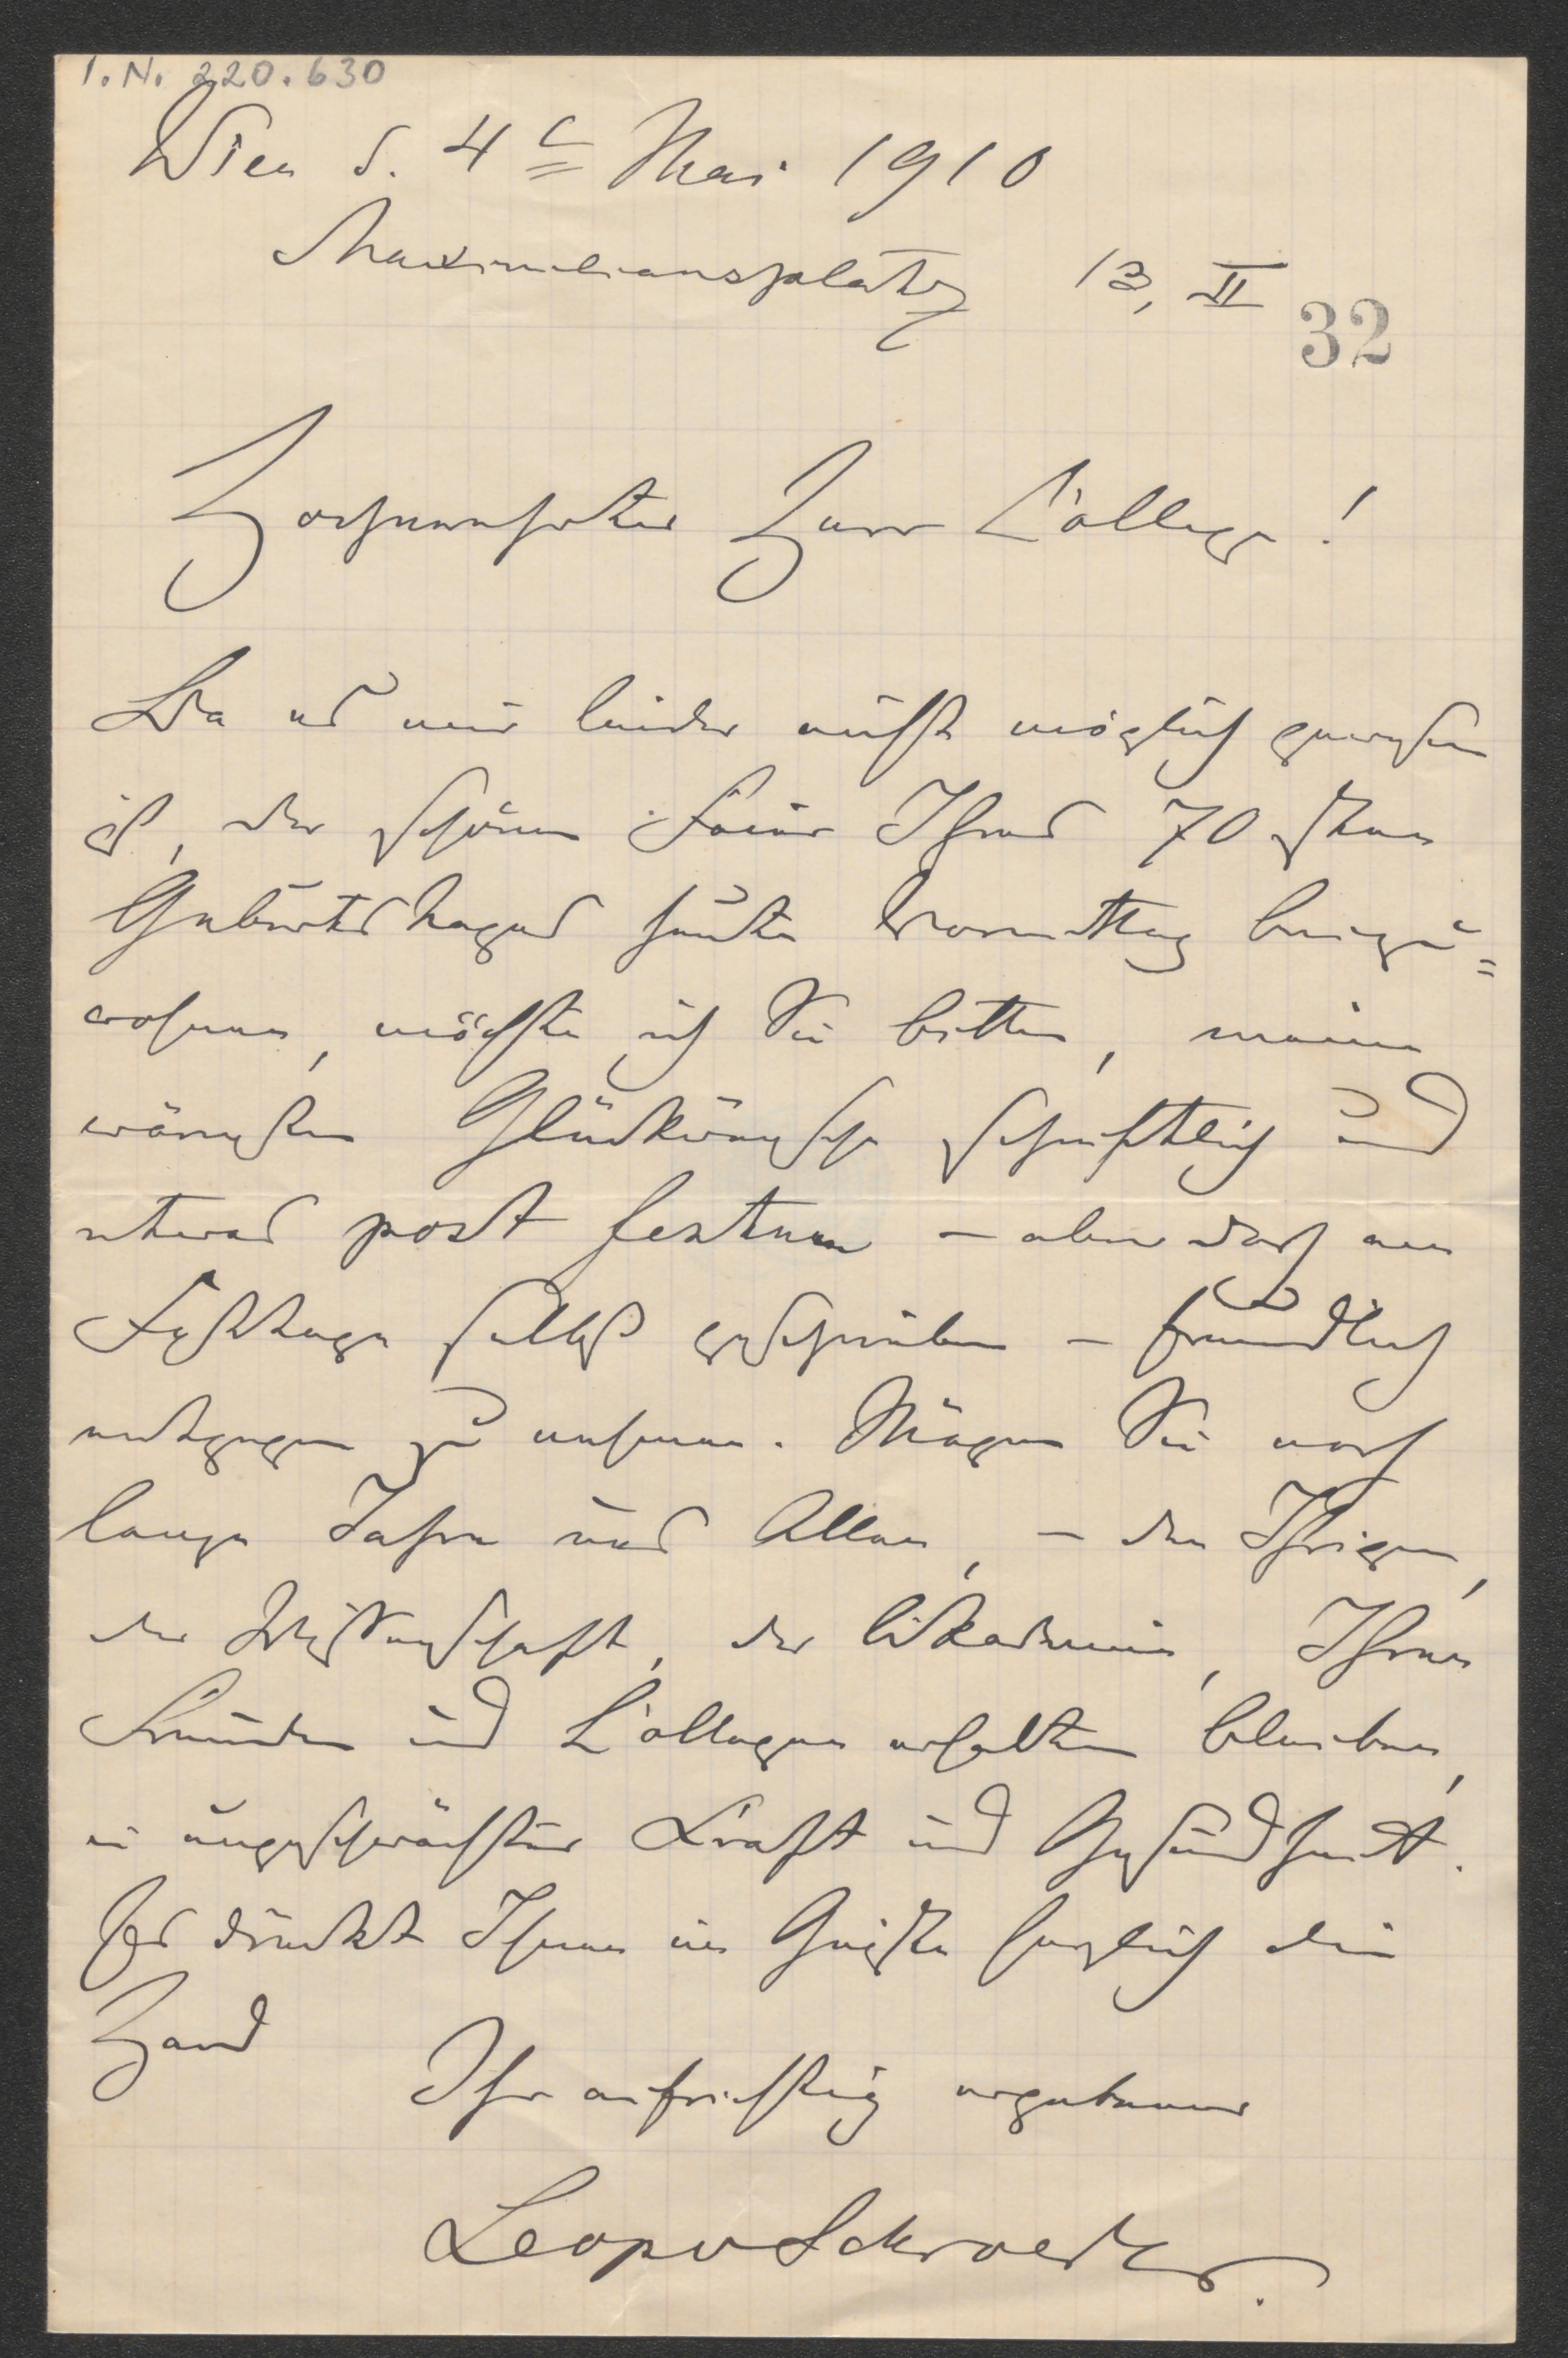 I. N. 220.630
Wien d. 4t Mai 1910
Maximiliansplatz 13, II
32
Hochverehrter Herr College!
Da es mir leider nicht möglich gewesen
ist, der schönen Feier Ihres 70sten
Geburtstages heute Vormittag beizu=
wohnen, möchte ich Sie bitten, meine
wärmsten Glückwünsche schriftlich und
etwas post festum – aber doch am
Festtage selbst geschrieben – freundlich
entgegen zu nehmen. Mögen Sie noch
lange Jahre uns Allen, – den Ihrigen,
der Wissenschaft, der Akademie, Ihren
Freunden und Collegen erhalten bleiben,
in ungeschwächter Kraft und Gesundheit.
Es drückt Ihnen im Geiste herzlich die
Hand
Ihr aufrichtig ergebener
Leop v Schroeder.